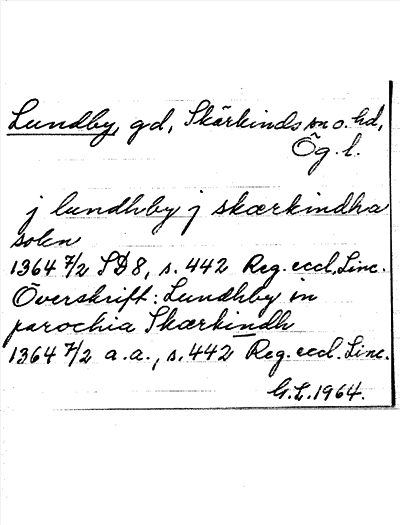 Lundby, gd, Skärkinds sn o. hd,
Ög. l.
j lundhby j skærkindha
sokn
1364 7/2 SD 8, s. 442 Reg. eccl. Linc.
Överskrift: Lundhby in
parochia Skærkindh
1364 7/2 a. a., s. 442 Reg. eccl. Linc.
G. L. 1964.